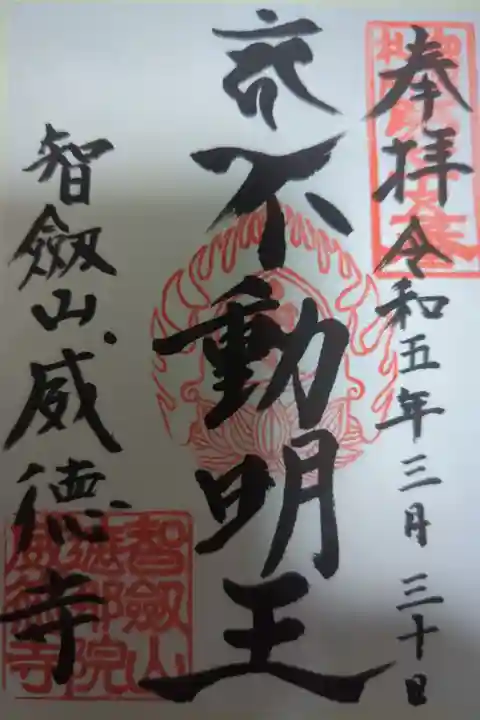 奉拝 令和五年三月三十日
不動明王
智劔山 威徳寺
智劔山
威徳寺